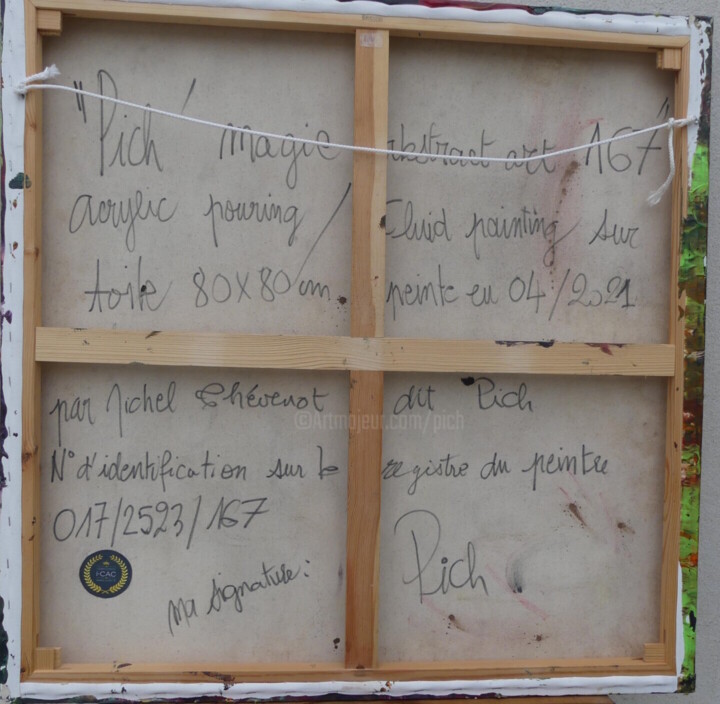 "Pich' magic abstract art 167"
acrylic pouring / Fluid painting sur
toile 80x80cm. peinte en 04/2021
par Michel Thévenot dit Pich
©Artmajeur.com/pich
N° d'identification sur le registre du peintre
017/2523/167
I-CAC
Ma signature:
Pich